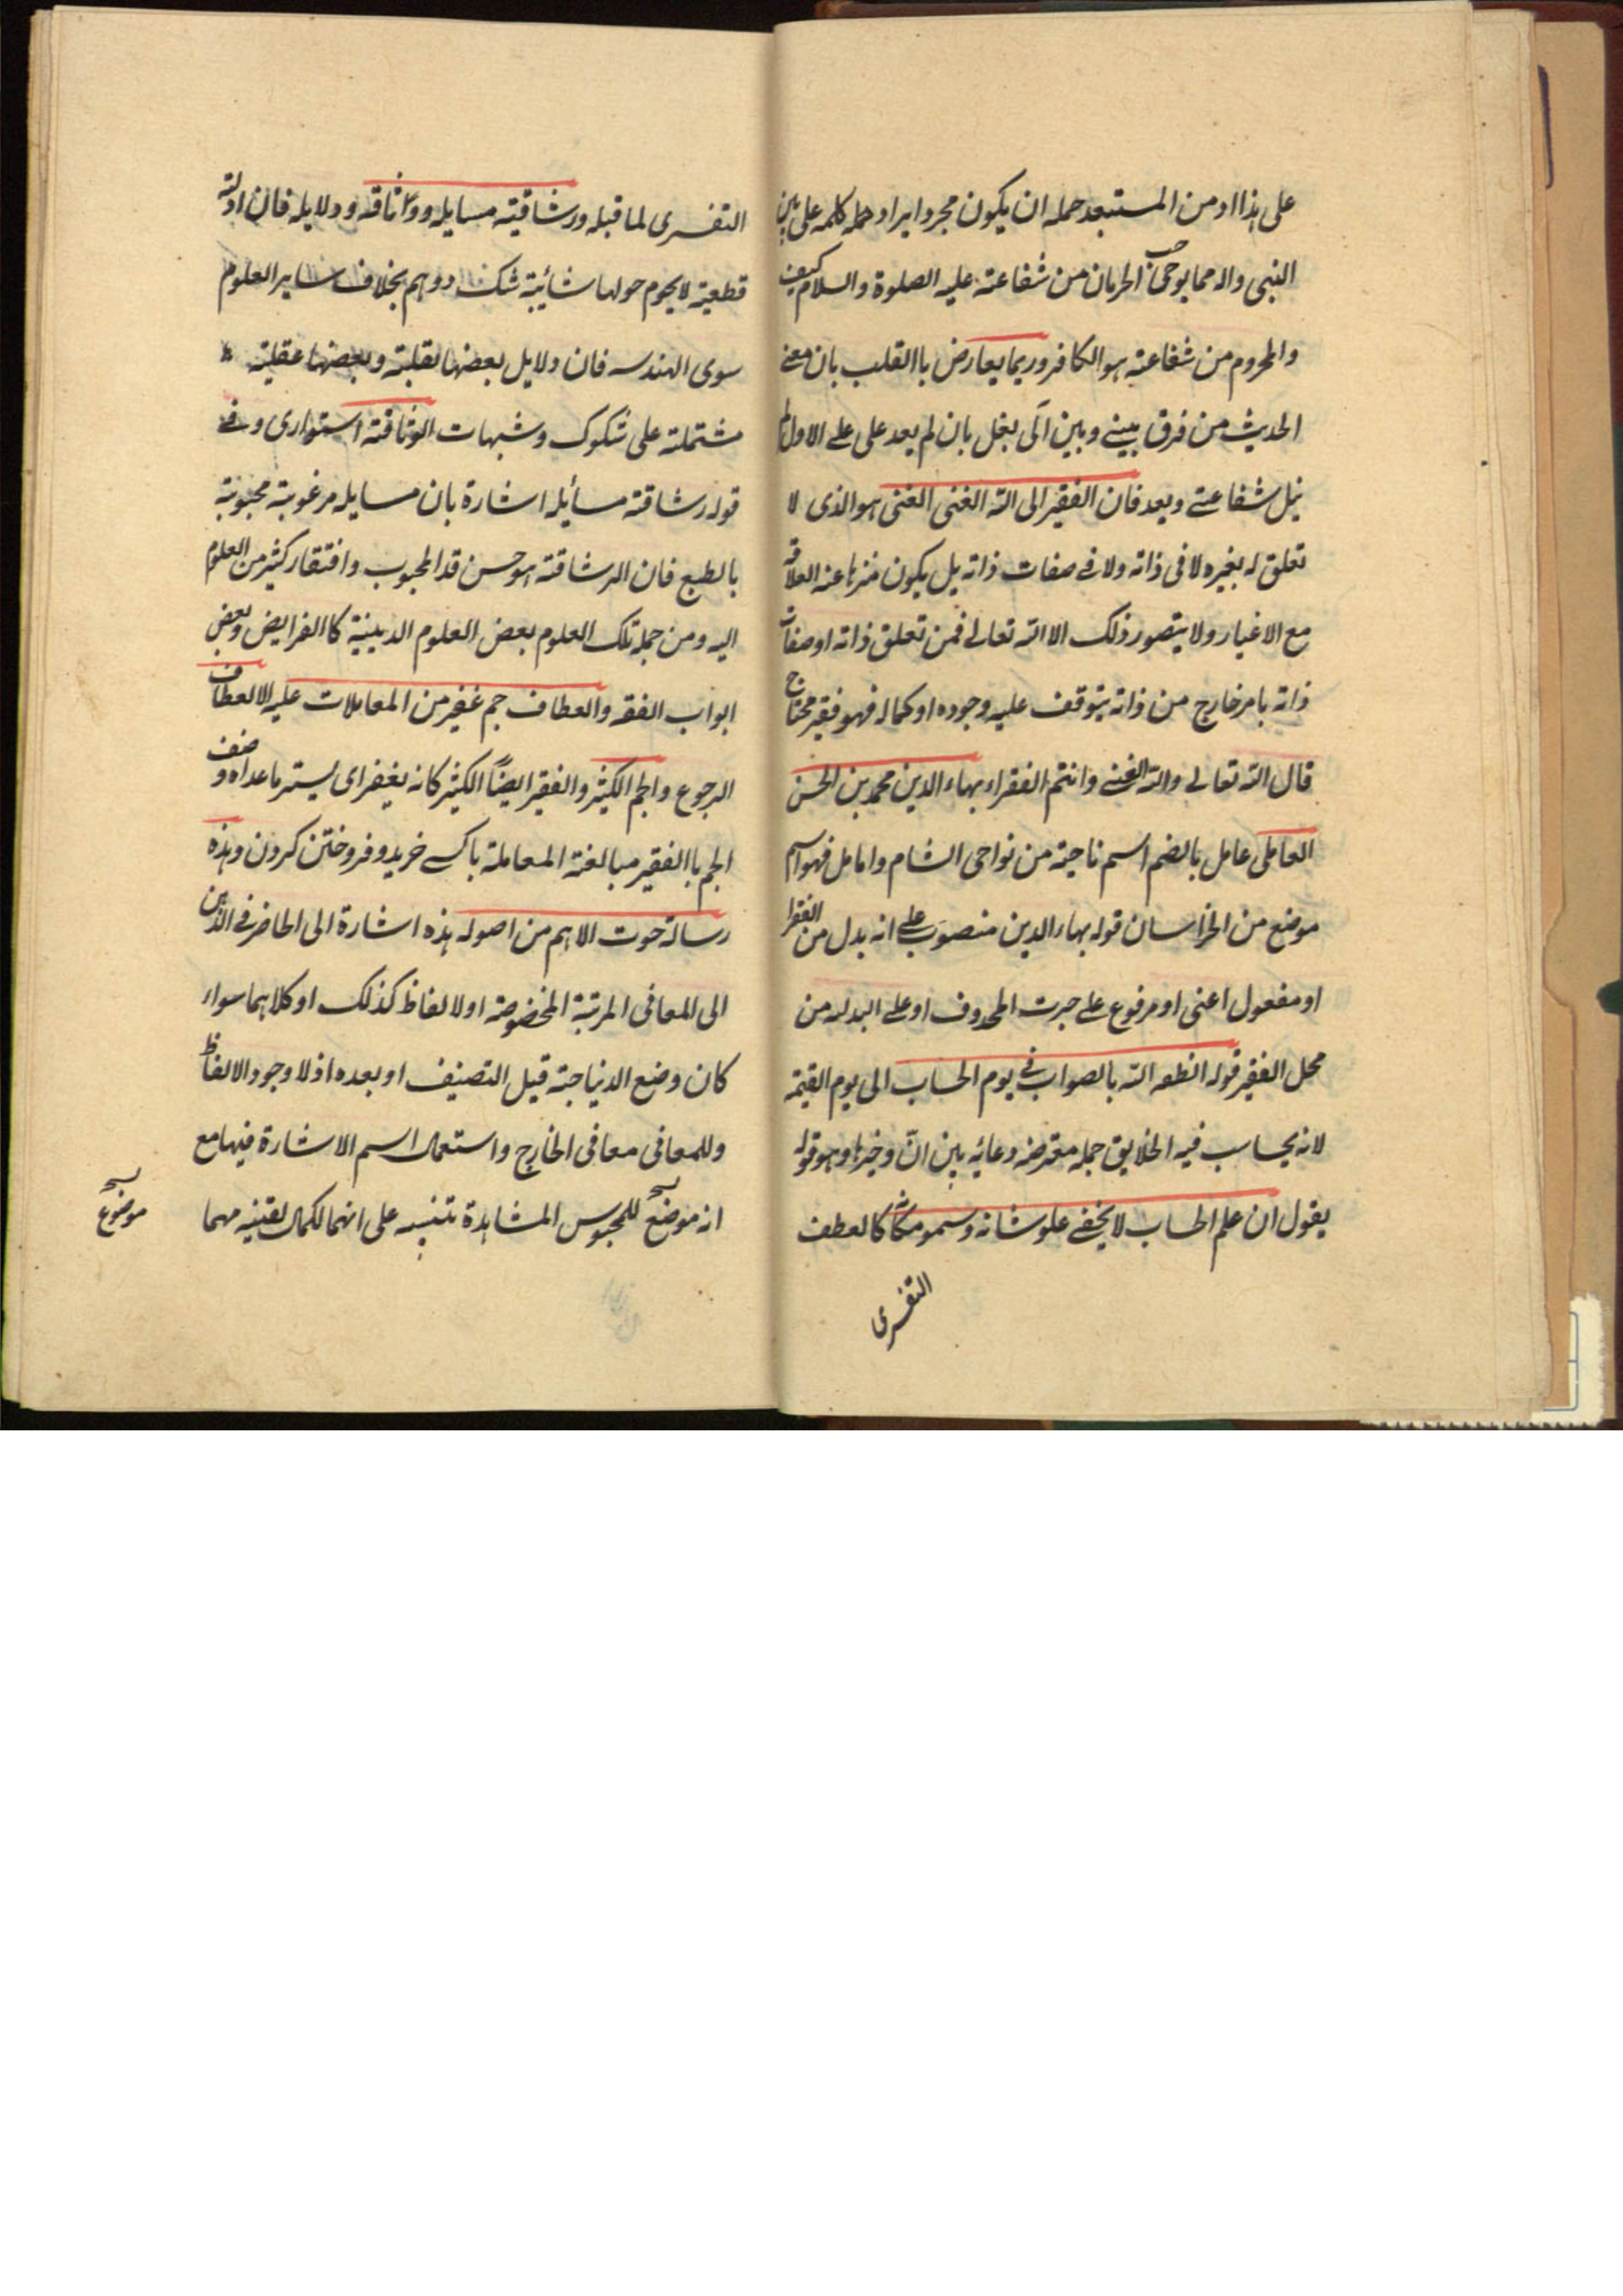 على هذا او من المستبعد حمله ان يكون مجرد ايراد حمله كلمه على بين
النبى واله مما يوجب الحرمان من شفاعته عليه الصلوة والسلام كيف
والمحروم من شفاعته هو الكافر وربما يعارض باالقلب بان معنے
الحديث من فرق بينے وبين آلى بغل بان لم يعد على علے الاول لم
نيل شفاعتے وبعد فان الفقير الى الله الغنى الغنى هو الذى لا
تعلق له بغيره لا فى ذاته ولا فے صفات ذاته بل يكون منزها عنه العلاقه
مع الاغيار ولا يتصور ذلك الا الله تعالے فمن تعلق ذاته او صفات
ذاته بامر خارج من ذاته يتوقف عليه وجوده او كماله فهو فقير محتاج
قال الله تعالے والله الغنے وانتم الفقراء بهاء الدين محمد بن الحسن
العاملى عامل بالضم اسم ناحية من نواحى الشام واما مل فهو اسم
موضع من الخراسان قوله بهاء الدين منصوب علے انه بدل من الفقرا
او مفعول اعنى او مرفوع علے خبرت المحذوف او علے البدله من
محل الفقير قوله انطقه الله بالصواب فے يوم الحساب الى يوم القيمة
لانه يحاسب فيه الخلايق جمله معترضه دعائيه بين انّ وخبرها وهو قوله
يقول ان علم الحساب لا يخفے علو شانه وسمو مكانه كالعطف
التفسرى
التفسرى لما قبله ورشاقيته مسايله ووثاقه ودلايله فان ادلته
قطعية لا يحوم حولها شائبة شك ووهم بخلاف ساير العلوم
سوى الهندسه فان دلايل بعضها نقلية وبعضها عقلية
مشتملة على شكوك وشبهات الوثاقة استوارى وفے
قوله رشاقته مسائله اشارة بان مسايله مرغوبة محبوبة
بالطبع فان الرشاقته هو حسن قد المحبوب وافتقار كثير من العلوم
اليه ومن جمله تلك العلوم بعض العلوم الدينية كاالفرايض وبعض
ابواب الفقه والعطاف جم غفير من المعاملات عليه الالعطاف
الرجوع والجم الكثير والغفير ايضاً الكثير كانه يغفر اى يستر ما عداه وصف
الجم باالغفير مبالغة المعاملة باكسے خريد وفروختن كردن وهذه
رسالة حوت الاهم من اصوله هذه اشارة الى الحاضر فے الذهن
الى المعافى المرتبة المخصوصة او لالفاظ كذلك او كلاهما سواء
كان وضع الديناجة قبل التصنيف او بعده اذ لا وجود الالفاظ
وللمعافى معافى الخارج واستعمال اسم الاشارة فيها مع
انه موضع للمحسوس المشاهدة تنبيه على انهما لكمال لقينيه مهما
موضوع